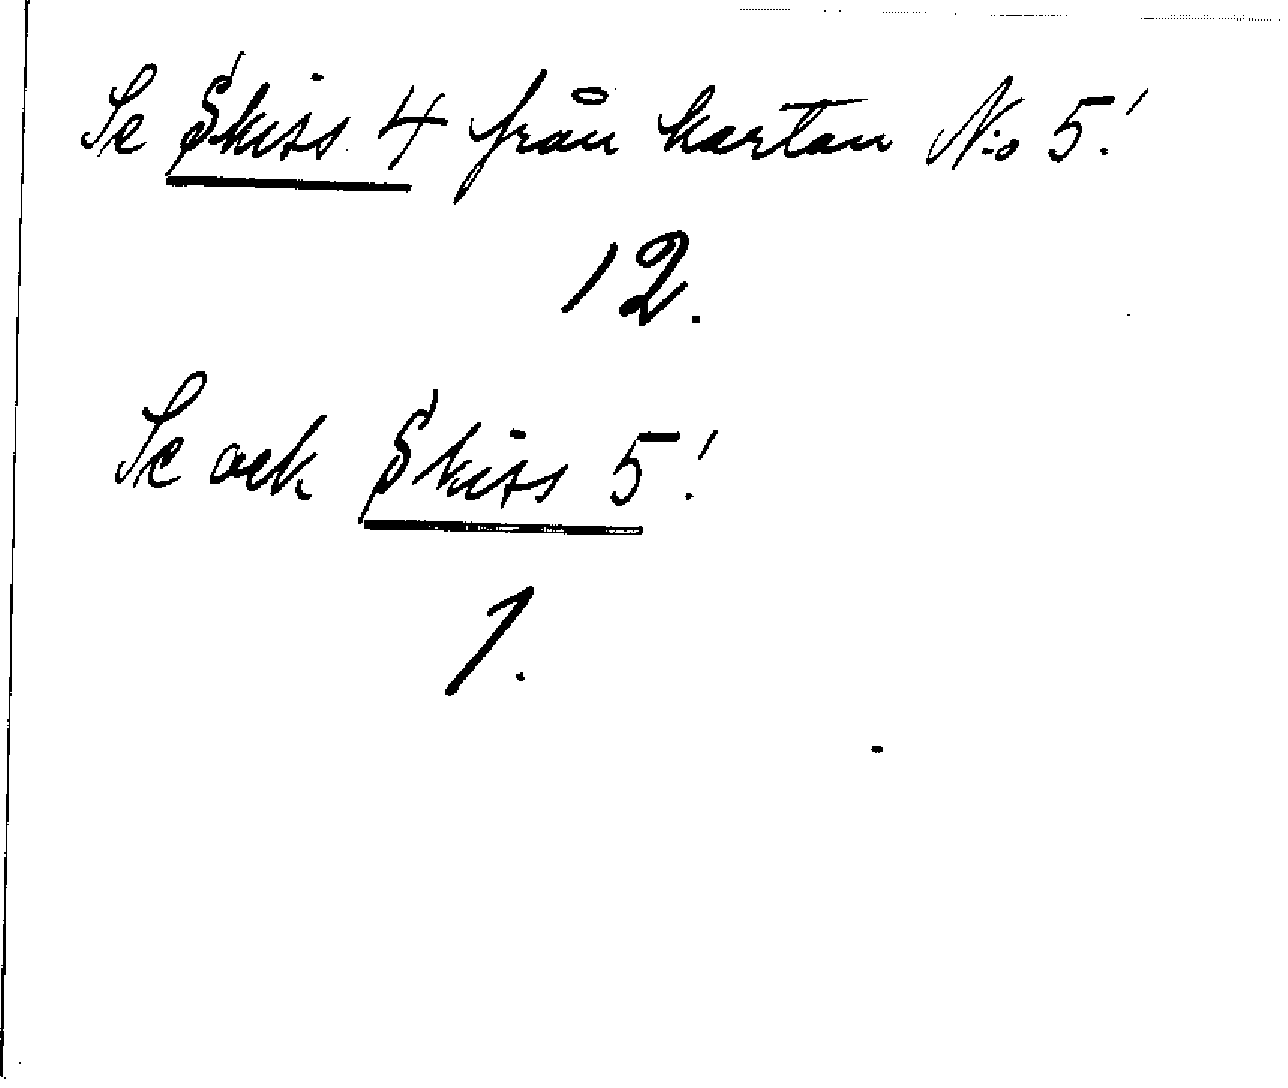 Se Skiss 4 från kartan N:o 5!
12.
Se ock Skiss 5!
1.